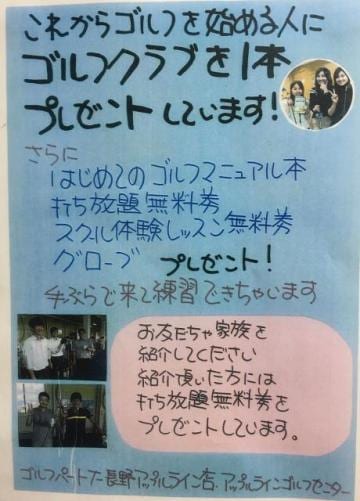 これからゴルフを始める人に
ゴルフクラブを1本
プレゼントしています!
さらに
はじめてのゴルフマニュアル本
打ち放題無料券
スクール体験レッスン無料券
グローブ プレゼント!
手ぶらで来て練習できちゃいます
お友だちや家族を
紹介してください
紹介頂いた方には
打ち放題無料券を
プレゼントしています。
ゴルフパートナー長野アップルライン店.アップルラインゴルフセンター